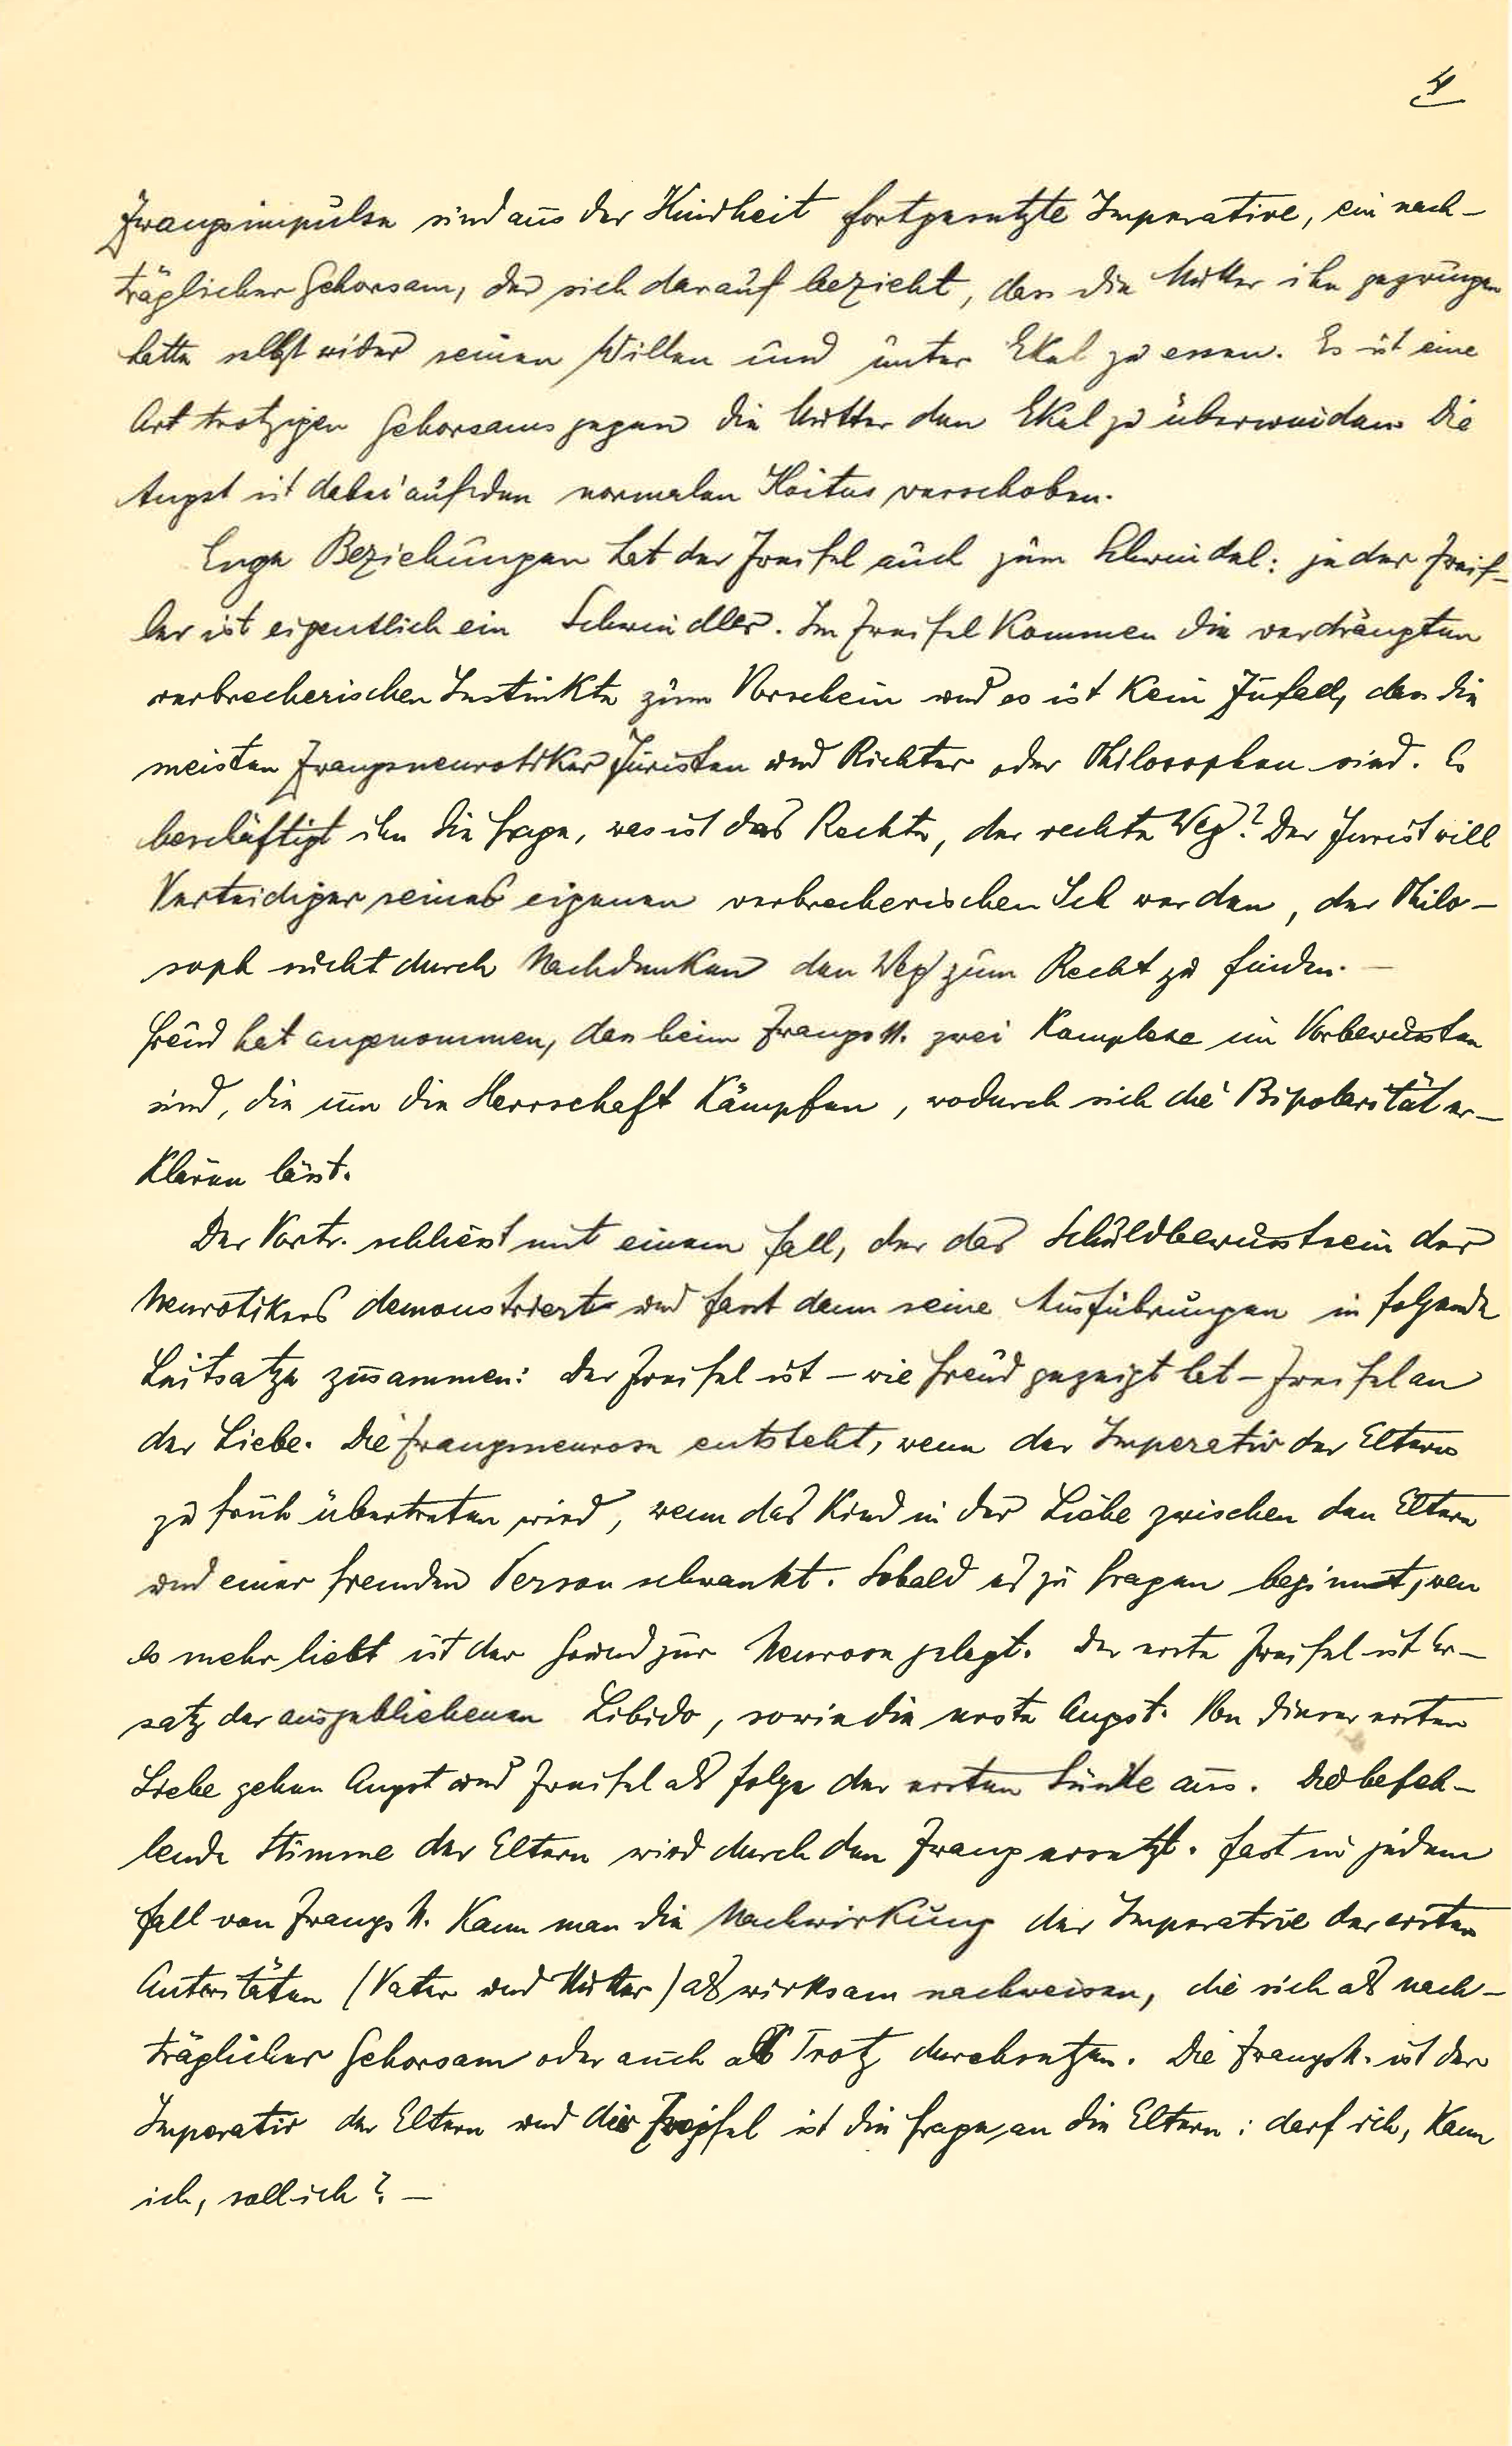 4
Zwangsimpulse sind aus der Kindheit fortgesetzte Imperative, ein nach-
träglicher Gehorsam, der sich darauf bezieht, dass die Mutter ihn gezwungen
hatte selbst wider seinen Willen und unter Ekel zu essen. Es ist eine
Art trotzigen Gehorsams gegen die Mutter den Ekel zu überwinden. Die
Angst ist dabei auf den normalen Koitus verschoben.
Enge Beziehungen hat der Zweifel auch zum Schwindel: jeder Zweif-
ler ist eigentlich ein Schwindler. Im Zweifel kommen die verdrängten
verbrecherischen Instinkte zum Vorschein und es ist kein Zufall, dass die
meisten Zwangsneurotiker Juristen und Richter oder Philosophen sind. Es
beschäftigt ihn die Frage, was ist das Rechte, der rechte Weg? Der Jurist will
Verteidiger seines eigenen verbrecherischen Ich werden, der Philo-
soph sucht durch Nachdenken den Weg zum Recht zu finden. —
Freud hat angenommen, dass beim Zwangs N. zwei Komplexe im Vorbewussten
sind, die um die Herrschaft kämpfen, wodurch sich die Bipolarität er-
klären lässt.
Der Vortr. schliesst mit einem Fall, der das Schuldbewusstsein des
Neurotikers demonstriert und fasst dann seine Ausführungen in folgende
Leitsatze zusammen: Der Zweifel ist – wie Freud gezeigt hat – Zweifel an
der Liebe. Die Zwangsneurose entsteht, wenn der Imperativ der Eltern
zu früh übertreten wird, wenn das Kind in der Liebe zwischen den Eltern
und einer fremden Person schwankt. Sobald es zu fragen beginnt, wen
es mehr liebt ist der Grund zur Neurose gelegt. Der erste Zweifel ist Er-
satz der ausgebliebenen Libido, sowie die erste Angst. Von dieser ersten
Liebe gehen Angst und Zweifel als Folge der ersten Sünde aus. Die befeh-
lende Stimme der Eltern wird durch den Zwang ersetzt. Fast in jedem
Fall von Zwangs N. kann man die Nachwirkung der Imperative der ersten
Autoritäten (Vater und Mutter) als wirksam nachweisen, die sich als nach-
träglicher Gehorsam oder auch als Trotz durchsetzen. Die Zwangs N. ist der
Imperativ der Eltern und der Zweifel ist die Frage an die Eltern: darf ich, kann
ich, soll ich? —